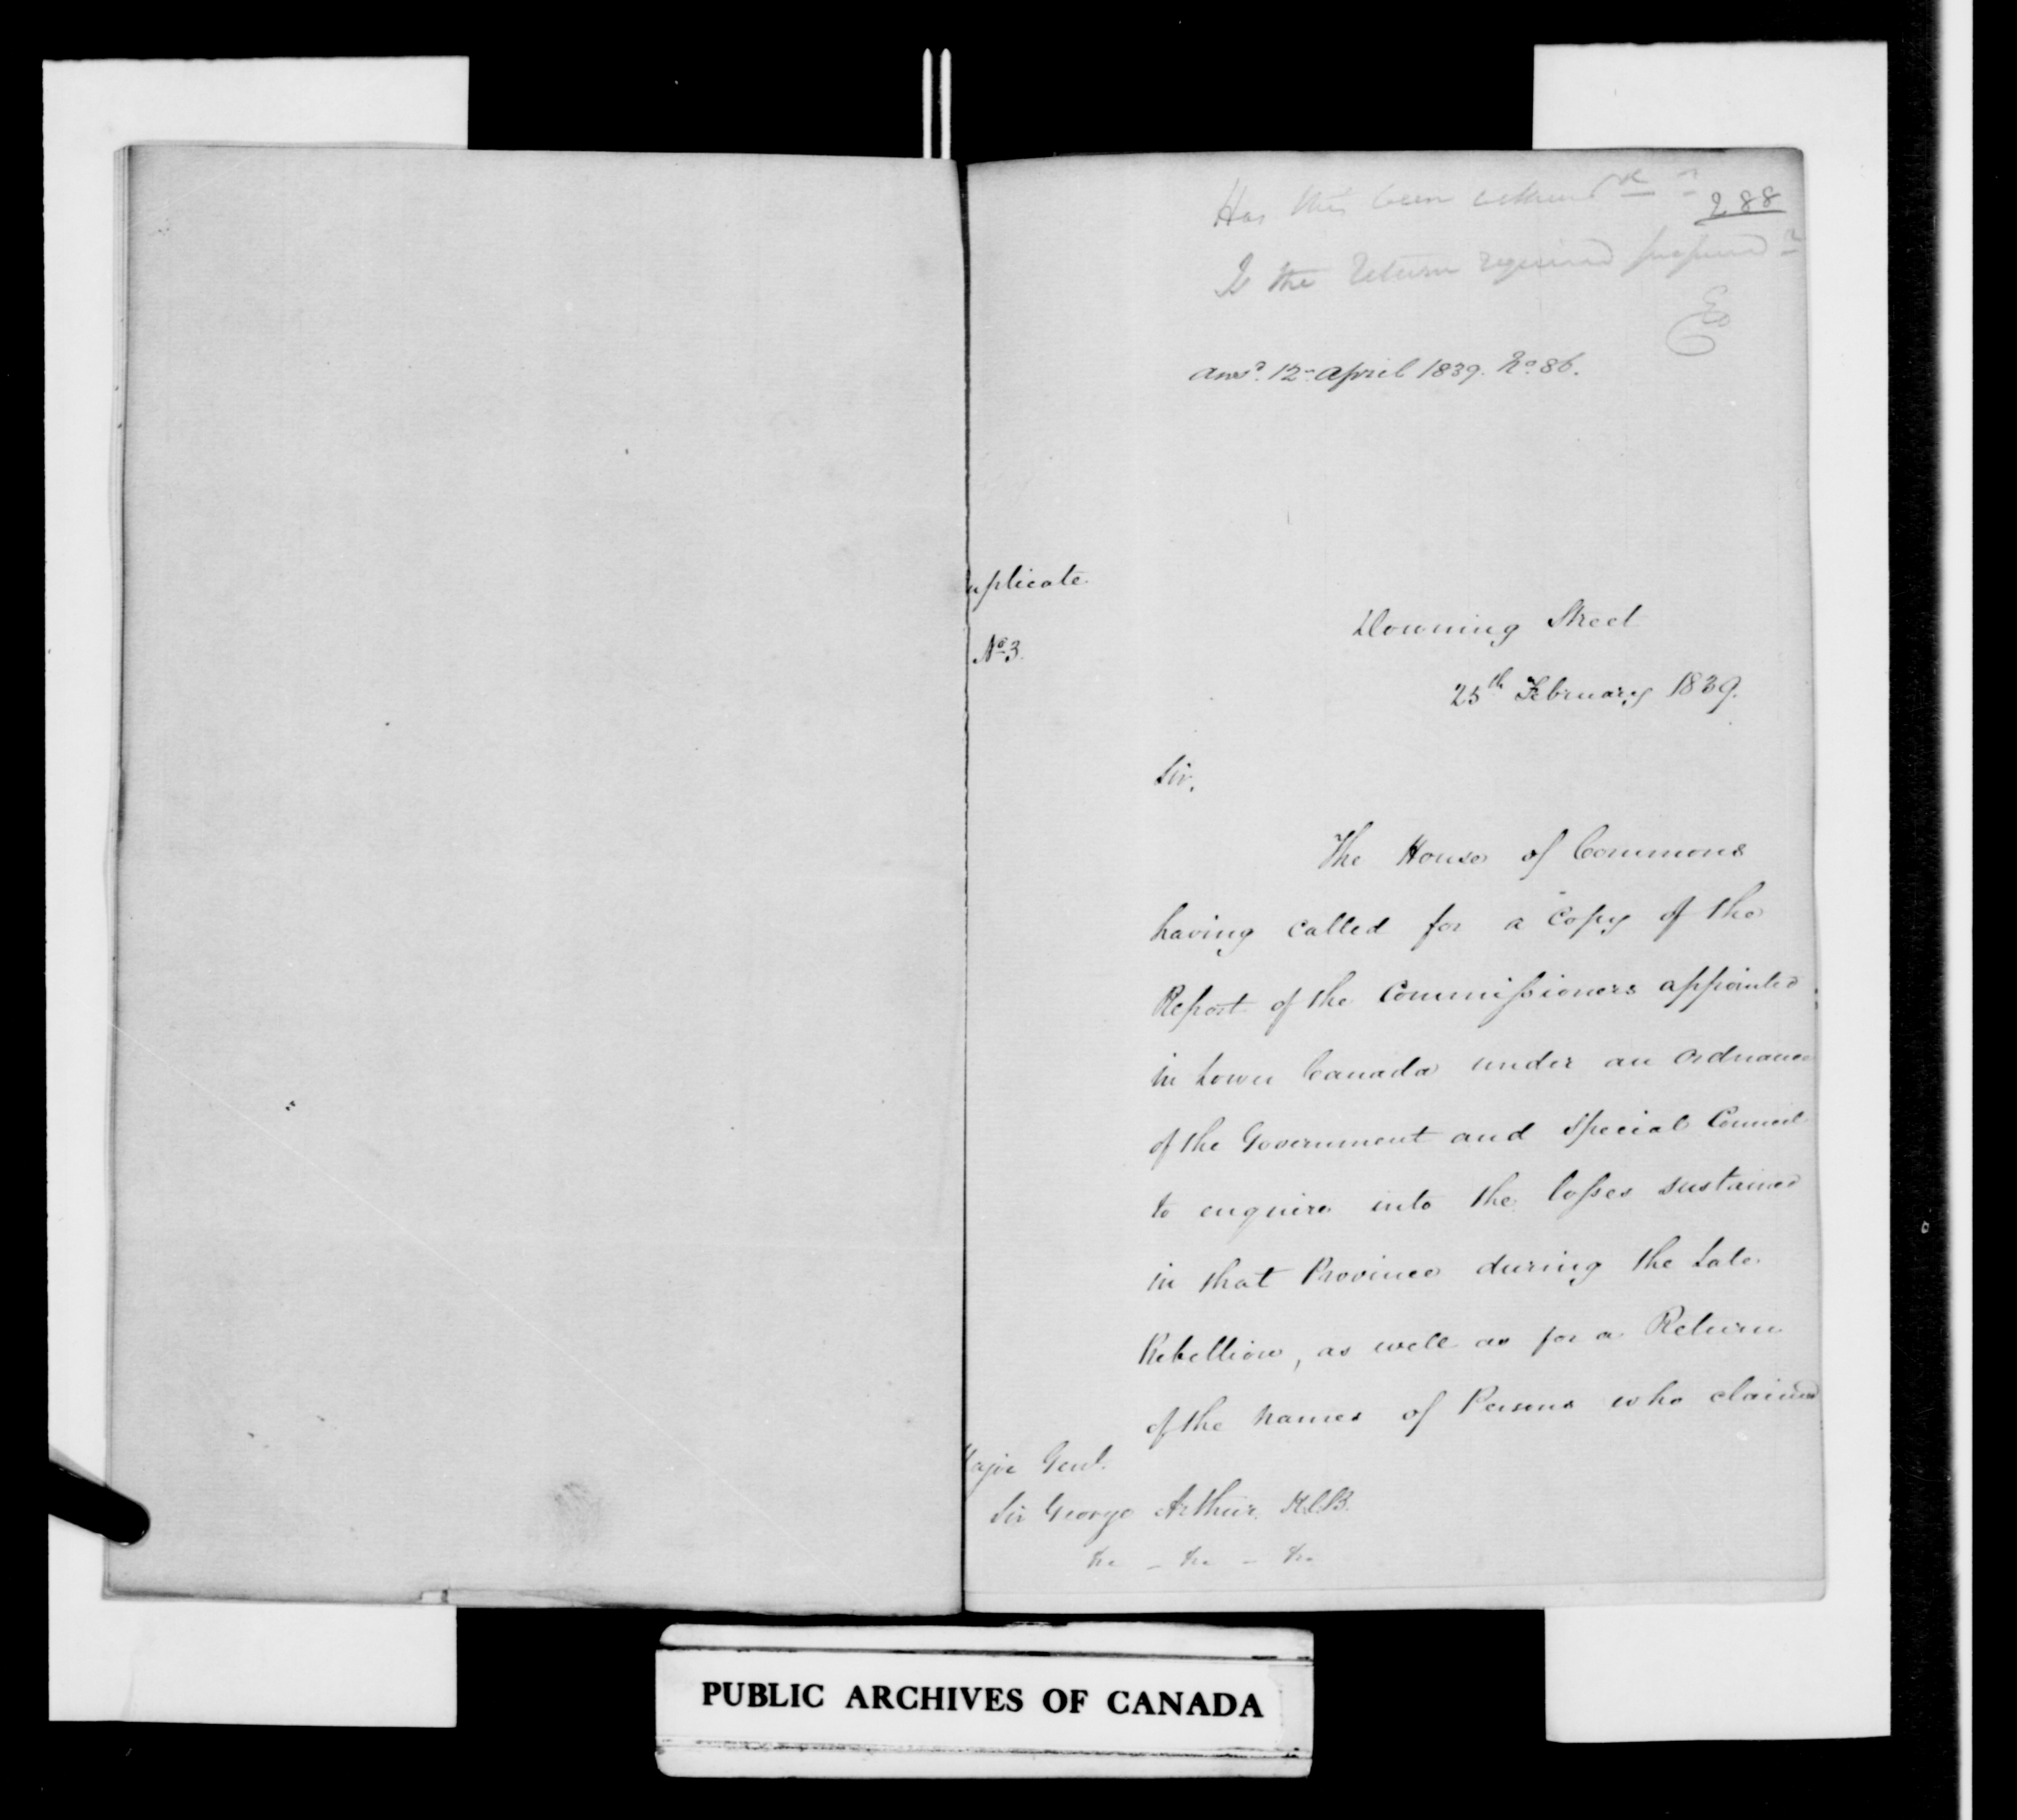 Has this been
288
Is the Return required prepared?
answd. 12th April 1839. No. 86.
uplicate
No. 3.
Downing Street
25th February 1839.
Sir,
The House of Commons
having called for a Copy of the
Report of the Commissioners appointed
in Lower Canada under an Ordnance
of the Government and Special Council
to enquire into the losses sustained
in that Province during the late
Rebellion, as well as for a Return
of the names of Persons who claimed
ajor Genl.
Sir George Arthur. K.C.B.
&c - &c - &c
PUBLIC ARCHIVES OF CANADA